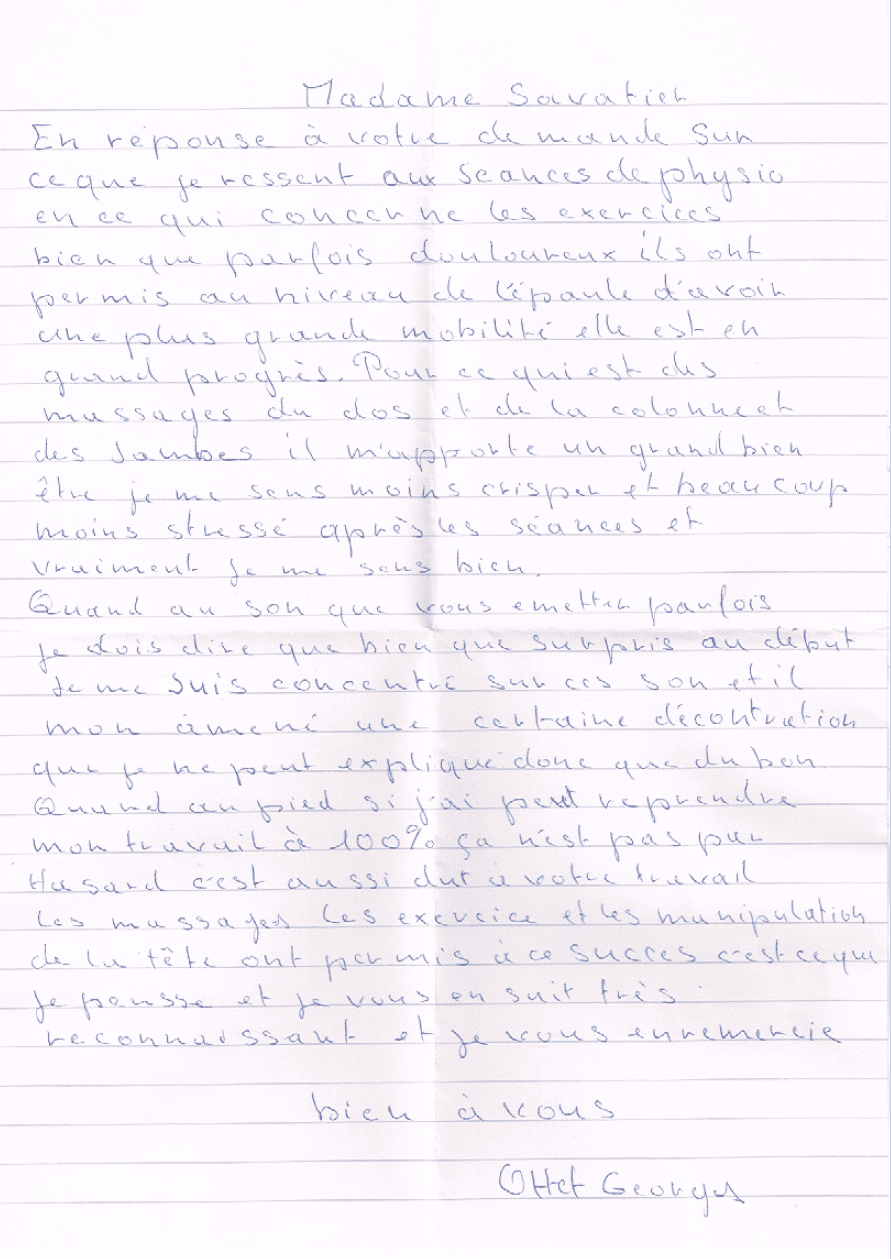 Madame Savatier
En réponse à votre demande sur
ce que je ressent aux séances de physio
en ce qui concerne les exercices
bien que parfois douloureux ils ont
permis au niveau de l'épaule d'avoir
une plus grande mobilité elle est en
grand progrès. Pour ce qui est des
massages du dos et de la colonne et
des Jambes il m'apporte un grand bien
être je me sens moins crisper et beaucoup
moins stressé après les séances et
vraiment je me sens bien.
Quand au son que vous emetter parfois
je dois dire que bien que surpris au début
Je me suis concentré sur ces son et il
mon âmené une certaine décontration
que je ne peut expliqué donc que du bon.
Quand au pied si j'ai peut reprendre
mon travail à 100% ça n'est pas par
Hasard c'est aussi dut à votre travail
les massages les exercice et les manipulation
de la tête ont permis à ce succes c'est ce que
je pensse et je vous en suit très
reconnaissant et je vous en remercie
bien à vous
Ottet Georges